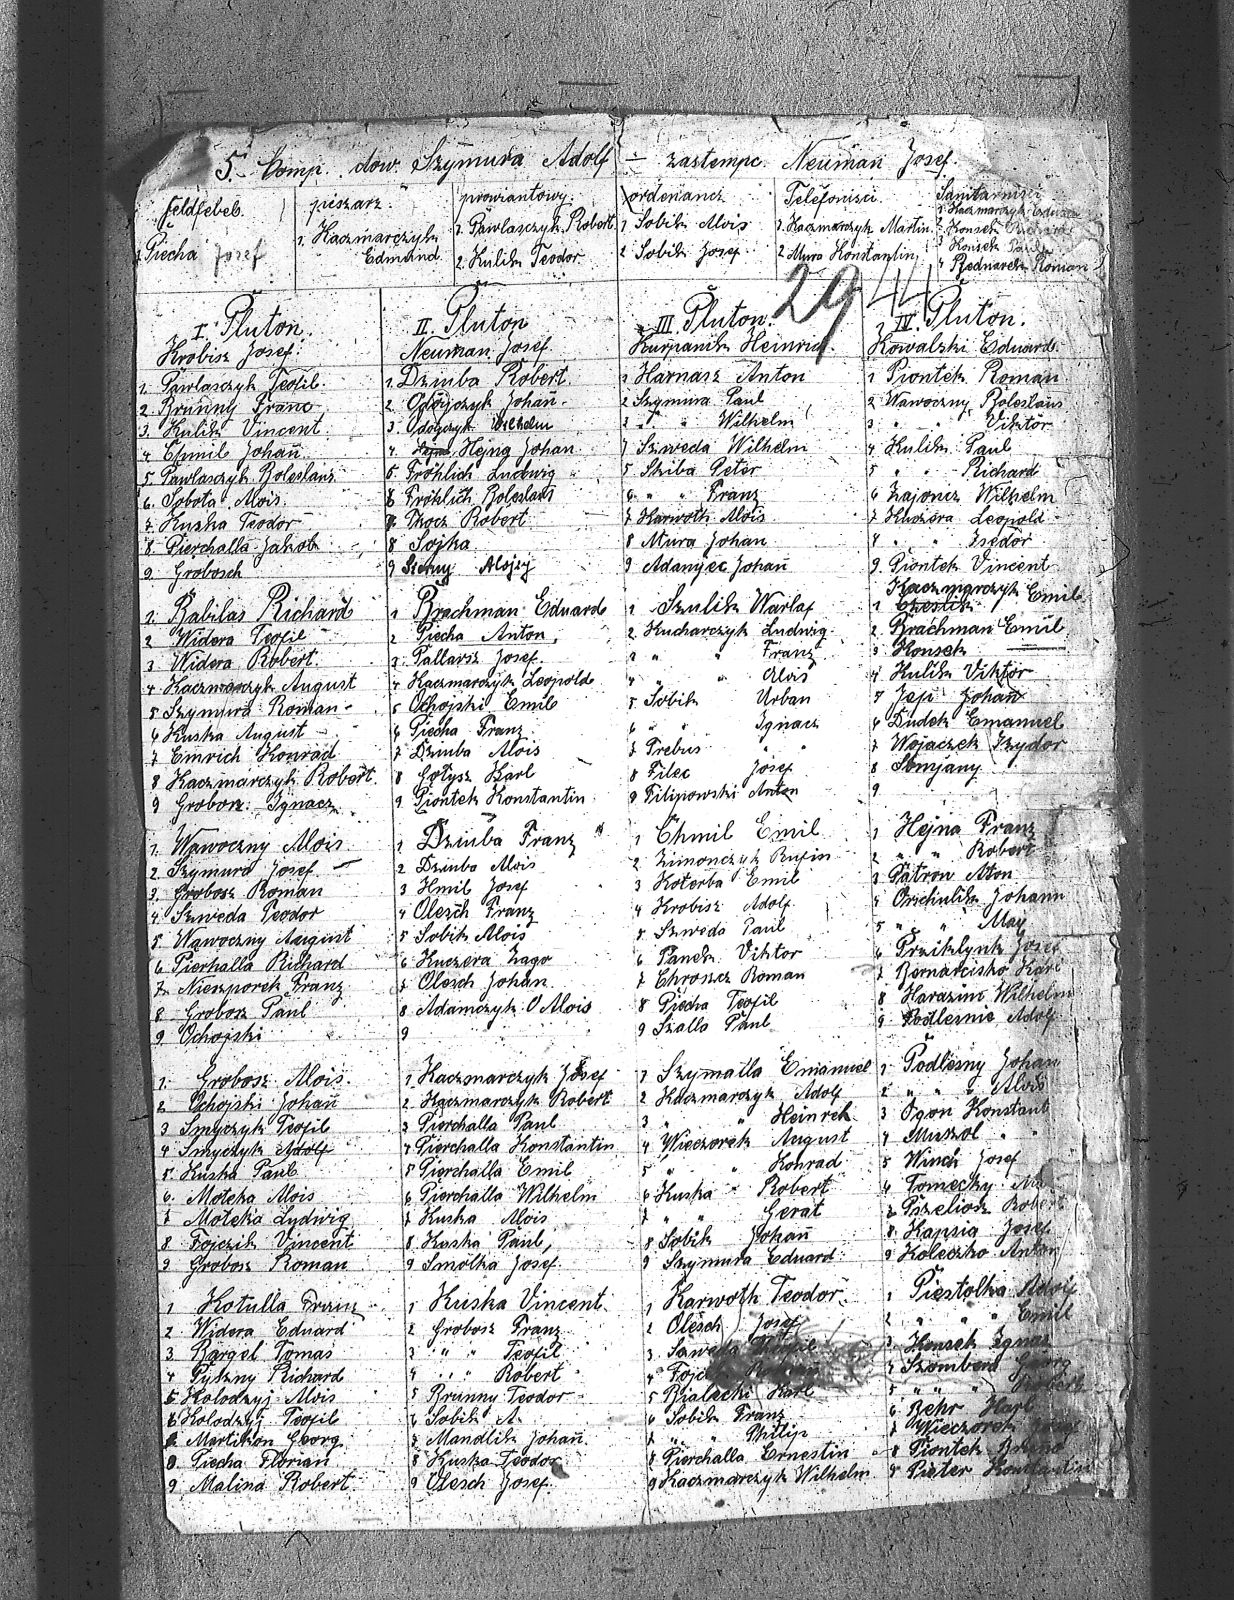 5. Komp. dow. Szymura Adolf – zastempc. Neuman Josef.
feldfebel.
1 Piecha Josef
piszarz
1. Kaczmarczyk
Edmund
prowiantowy.
1 Pawlasczyk Robert
2. Kulik Teodor
ordenancz
1 Sobik Alois
2 Sobik Josef
Telefonisci
1 Kaczmarczyk Martin
2 Mura Konstantin
Sanitarnisci
1 Kaczmarczyk Eduard
2 Konsek Richard
3 Konsek Paul
4 Bednarek Roman
29 44
I. Pluton.
Krobisz Josef.
1. Pawlasczyk Teofil.
2 Brunny Franc
3. Kulik Vincent
4 Chmil Johan
5 Pawlasczyk Boleslaus
6. Sobota Alois
7 Kuska Teodor
8 Pierchalla Jakob
9. Grobosch
1. Babilas Richard
2 Widera Teofil
3 Widera Robert
4 Kaczmarczyk August
5 Szymura Roman
6 Kuska August
7 Emrich Konrad
8 Kaczmarczyk Robert
9 Grobosz Ignacz
1. Wawoczny Alois
2. Szymura Josef
3. Grobosz Roman
4 Szweda Teodor
5. Wawoczny August
6 Pierhalla Richard
7. Nieszporek Franz
8. Grobosz Paul
9. Ochojski
1. Grobosz Alois
2 Ochojski Johan
3 Smyczyk Teofil
4 Smyczyk Adolf
5. Kuska Paul
6. Moteka Alois
7 Moteka Ludwig
8 Fojczik Vincent
9 Grobosz Roman
1 Kotulla Franz
2 Widera Eduard
3. Bargel Tomas
4 Pytzny Richard
5 Kolodzyj Alois
6 Kolodzyj Teofil
Martikon Georg
8. Piecha Florian
9 Malina Robert
II Pluton
Neuman Josef
1. Dziuba Robert
2 Ogojczyk Johan
3. Odojczyk Wilhelm
4 Hejna Johan
5 Fröhlich Ludwig
6 Fröhlich Boleslaus
7. Tkocz Robert
8 Sojka
9 Szeny Alojzy
1 Brachman Eduard
2 Piecha Anton
3 Pallarsz Josef
4 Kaczmarczyk Leopold
5 Ochojski Emil
6 Piecha Franz
7 Dziuba Alois
8 Gotysz Karl
9 Piontek Konstantin
1 Dziuba Franz
2 Dziuba Alois
3 Hmil Josef
4 Olesch Franz
5 Sobik Alois
6 Kuczera Zago
7 Olesch Johan
8 Adamczyk O Alois
9
1 Kaczmarczyk Josef
2 Kaczmarczyk Robert
3 Pierchalla Paul
4 Pierchalla Konstantin
5 Pierchalla Emil
6 Pierchalla Wilhelm
7 Kuska Alois
8 Kuska Paul
9 Smolka Josef
1 Kuska Vincent
2 Grobosz Franz
3 " " Teofil
4 " " Robert
5 Brunny Teodor
6 Sobik A.
7 Mandlik Johan
8 Kuska Teodor
9 Olesch Josef
III Pluton.
Kurpanik Heinrich
1 Harnasz Anton
2 Szymura Paul
3 " " Wilhelm
4 Szweda Wilhelm
5 Skiba Peter
6 " " Franz
7 Karwoth Alois
8 Mura Johan
9 Adamjec Johan
1 Szulik Warlaf
2. Kucharczyk Ludwig
3 " " Franz
4 " " Alois
5 Sobik Urban
6 " " Ignacz
7 Prebus " "
8 Filec Josef
9 Filipowski Anton
1 Chmil Emil
2 Zimonczyk Rufin
3 Koterba Emil
4 Krobisz Adolf
5 Szweda Paul
6 Panek Viktor
7 Chroszcz Roman
8 Piecha Teofil
9 Szalla Paul
1 Szymalla Emanuel
2 Kaczmarczyk Adolf
3 " " Heinreh
4 Wieczorek August
5 " " Konrad
6 Kuska Robert
7 " " Gerat
8 Sobik Johan
9 Szymura Eduard
1 Karwoth Teodor
2 Olesch Josef
3. Szweda
4 Fojcik
5 Bialecki Karl
6 Sobik Franz
7 " " Philip
8 Pierchalla Ernestin
9 Kaczmarczyk Wilhelm
IV. Pluton.
Kowalski Eduard.
1 Piontek Roman
2 Wawoczny Boleslaus
3 " " Viktor
4 Kulik Paul
5 " " Richard
6 Zajoncz Wilhelm
7 Kuczera Leopold
8 " " Isedor
9. Piontek Vincent
1 Kaczmarczyk Emil
2. Brachman Emil
3 Konsek
4 Kulik Viktor
5 Jeji Johan
6 Dudek Emanuel
7 Wojaczek Izydor
8 Somjany
9
1 Hejna Franz
2 " " Robert
3 Patron Aton
4 Orichulik Johann
5 " " May
6 Prziklynk Josef
7 Bernatcisko Karl
8 Harazim Wilhelm
9 Podlesnie Adolf
1 Podlesny Johan
2 " " Alois
3 Ogon Konstant
4 Muszol " "
5 Winch Josef
6 Tomecky
7 Pszeliorz Robert
8 Kapsia Josef
9 Koleczko Anton
1 Piestolka Adolf
2 " " Emil
3 Konsek Ignac
4 Szombera Georg
5 " " Herbert
6 Behr Karl
7 Wieczorek
8 Piontek
9 Pieter Konstantin